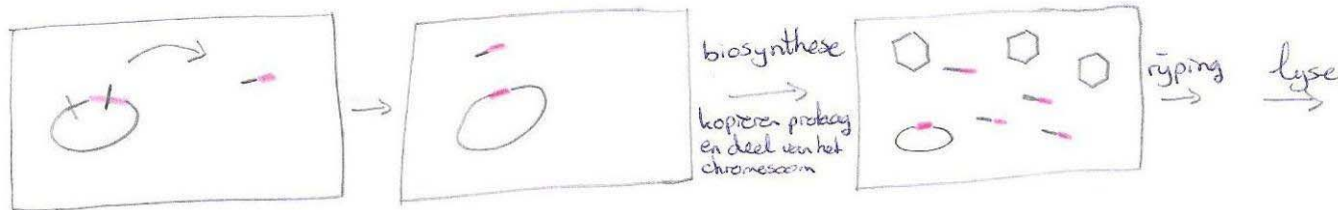 biosynthese
kopiëren profaag
en deel van het
chromosoom
rijping
lyse